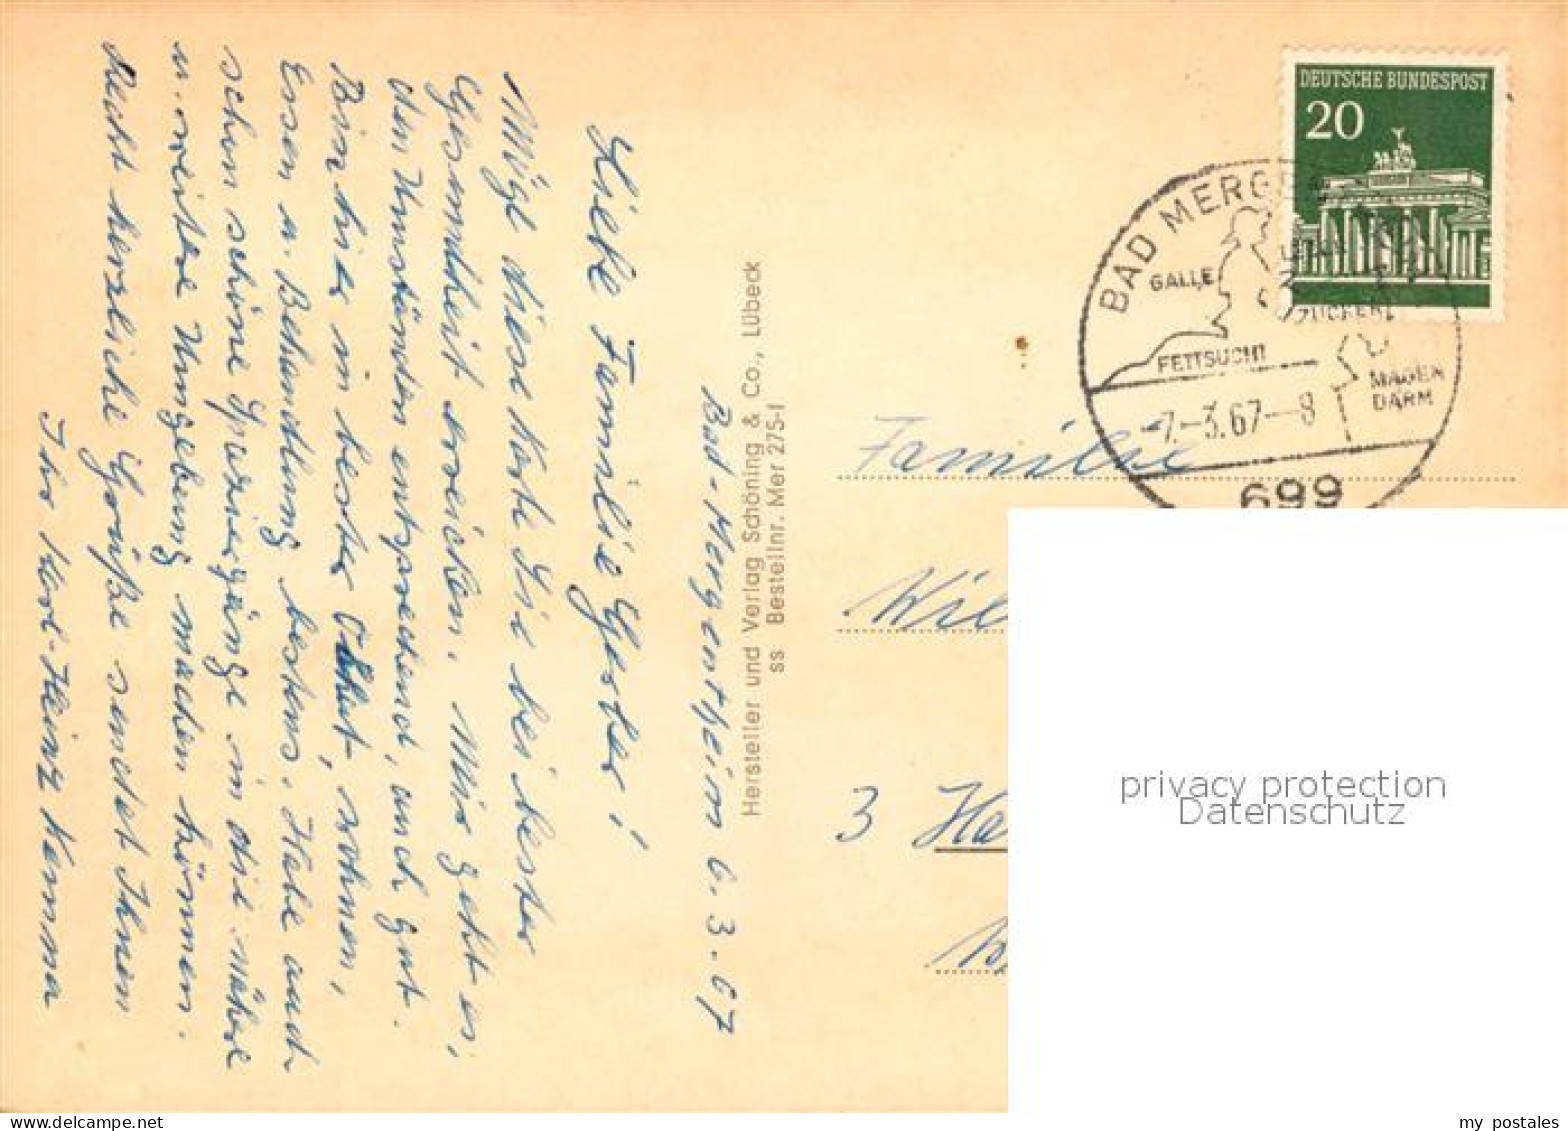 Bad-Mergentheim 6.3.67
Liebe Familie Gerber!
Mögt diese Karte Sie bei bester
Gesundheit erreichen. Mir geht es,
den Umständen entsprechend, auch gut.
Bin hier in bester wohnen,
Essen u. Behandlung bestens. Habe auch
schon schöne Spaziergänge in die nähere
u. weitere Umgebung machen können.
Recht herzliche Grüße sendet Ihnen
Ihr Karl-Heinz Kemna
Hersteller und Verlag Schöning & Co., Lübeck
ss Bestellnr. Mer 275-I
DEUTSCHE BUNDESPOST
20
BAD MERG
GALLE
ZUCKER
FETTSUCHT
MAGEN
DARM
-7.-3.67--8
699
Familie
Wil
3 Ha
privacy protection
Datenschutz
my postales